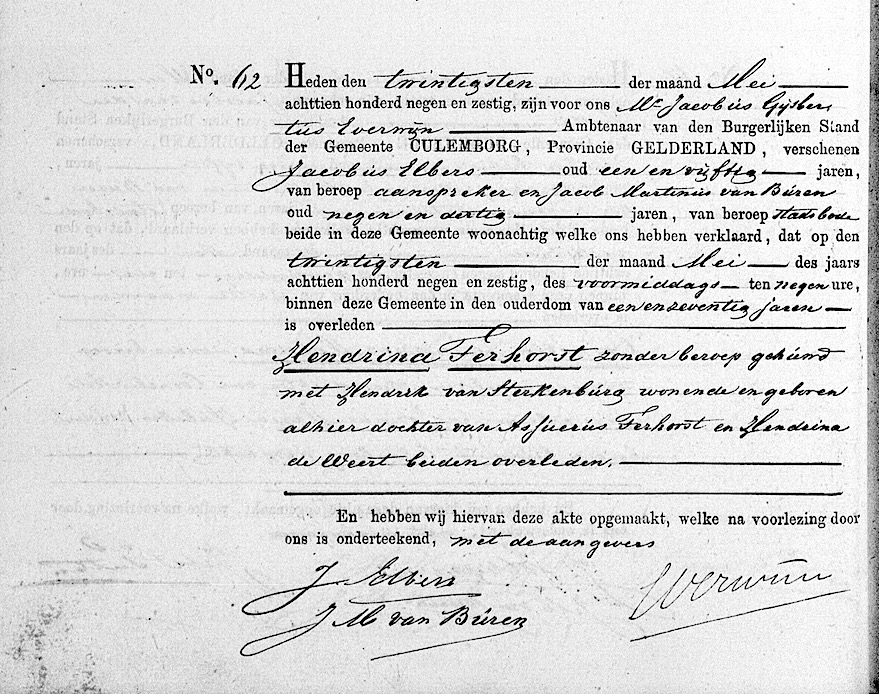 No. 62 Heden den twintigsten der maand Mei
achttien honderd negen en zestig, zijn voor ons Mr Jacobus Gijsber
tus Everwijn Ambtenaar van den Burgerlijken Stand
der Gemeente CULEMBORG, Provincie GELDERLAND, verschenen
Jacobus Elbers oud een en vijftig jaren,
van beroep aanspreker en Jacob Martinus van Buren
oud negen en dertig jaren, van beroep stadsbode
beide in deze Gemeente woonachtig welke ons hebben verklaard, dat op den
twintigsten der maand Mei des jaars
achttien honderd negen en zestig, des voormiddags ten negen ure,
binnen deze Gemeente in den ouderdom van een en zeventig jaren
is overleden
Hendrina Terhorst zonder beroep gehuwd
met Hendrik van Sterkenburg wonende en geboren
alhier dochter van Assuerus Terhorst en Hendrina
de Weert beiden overleden.
En hebben wij hiervan deze akte opgemaakt, welke na voorlezing door
ons is onderteekend, met de aangevers
J Elbers
J M van Buren
Everwijn